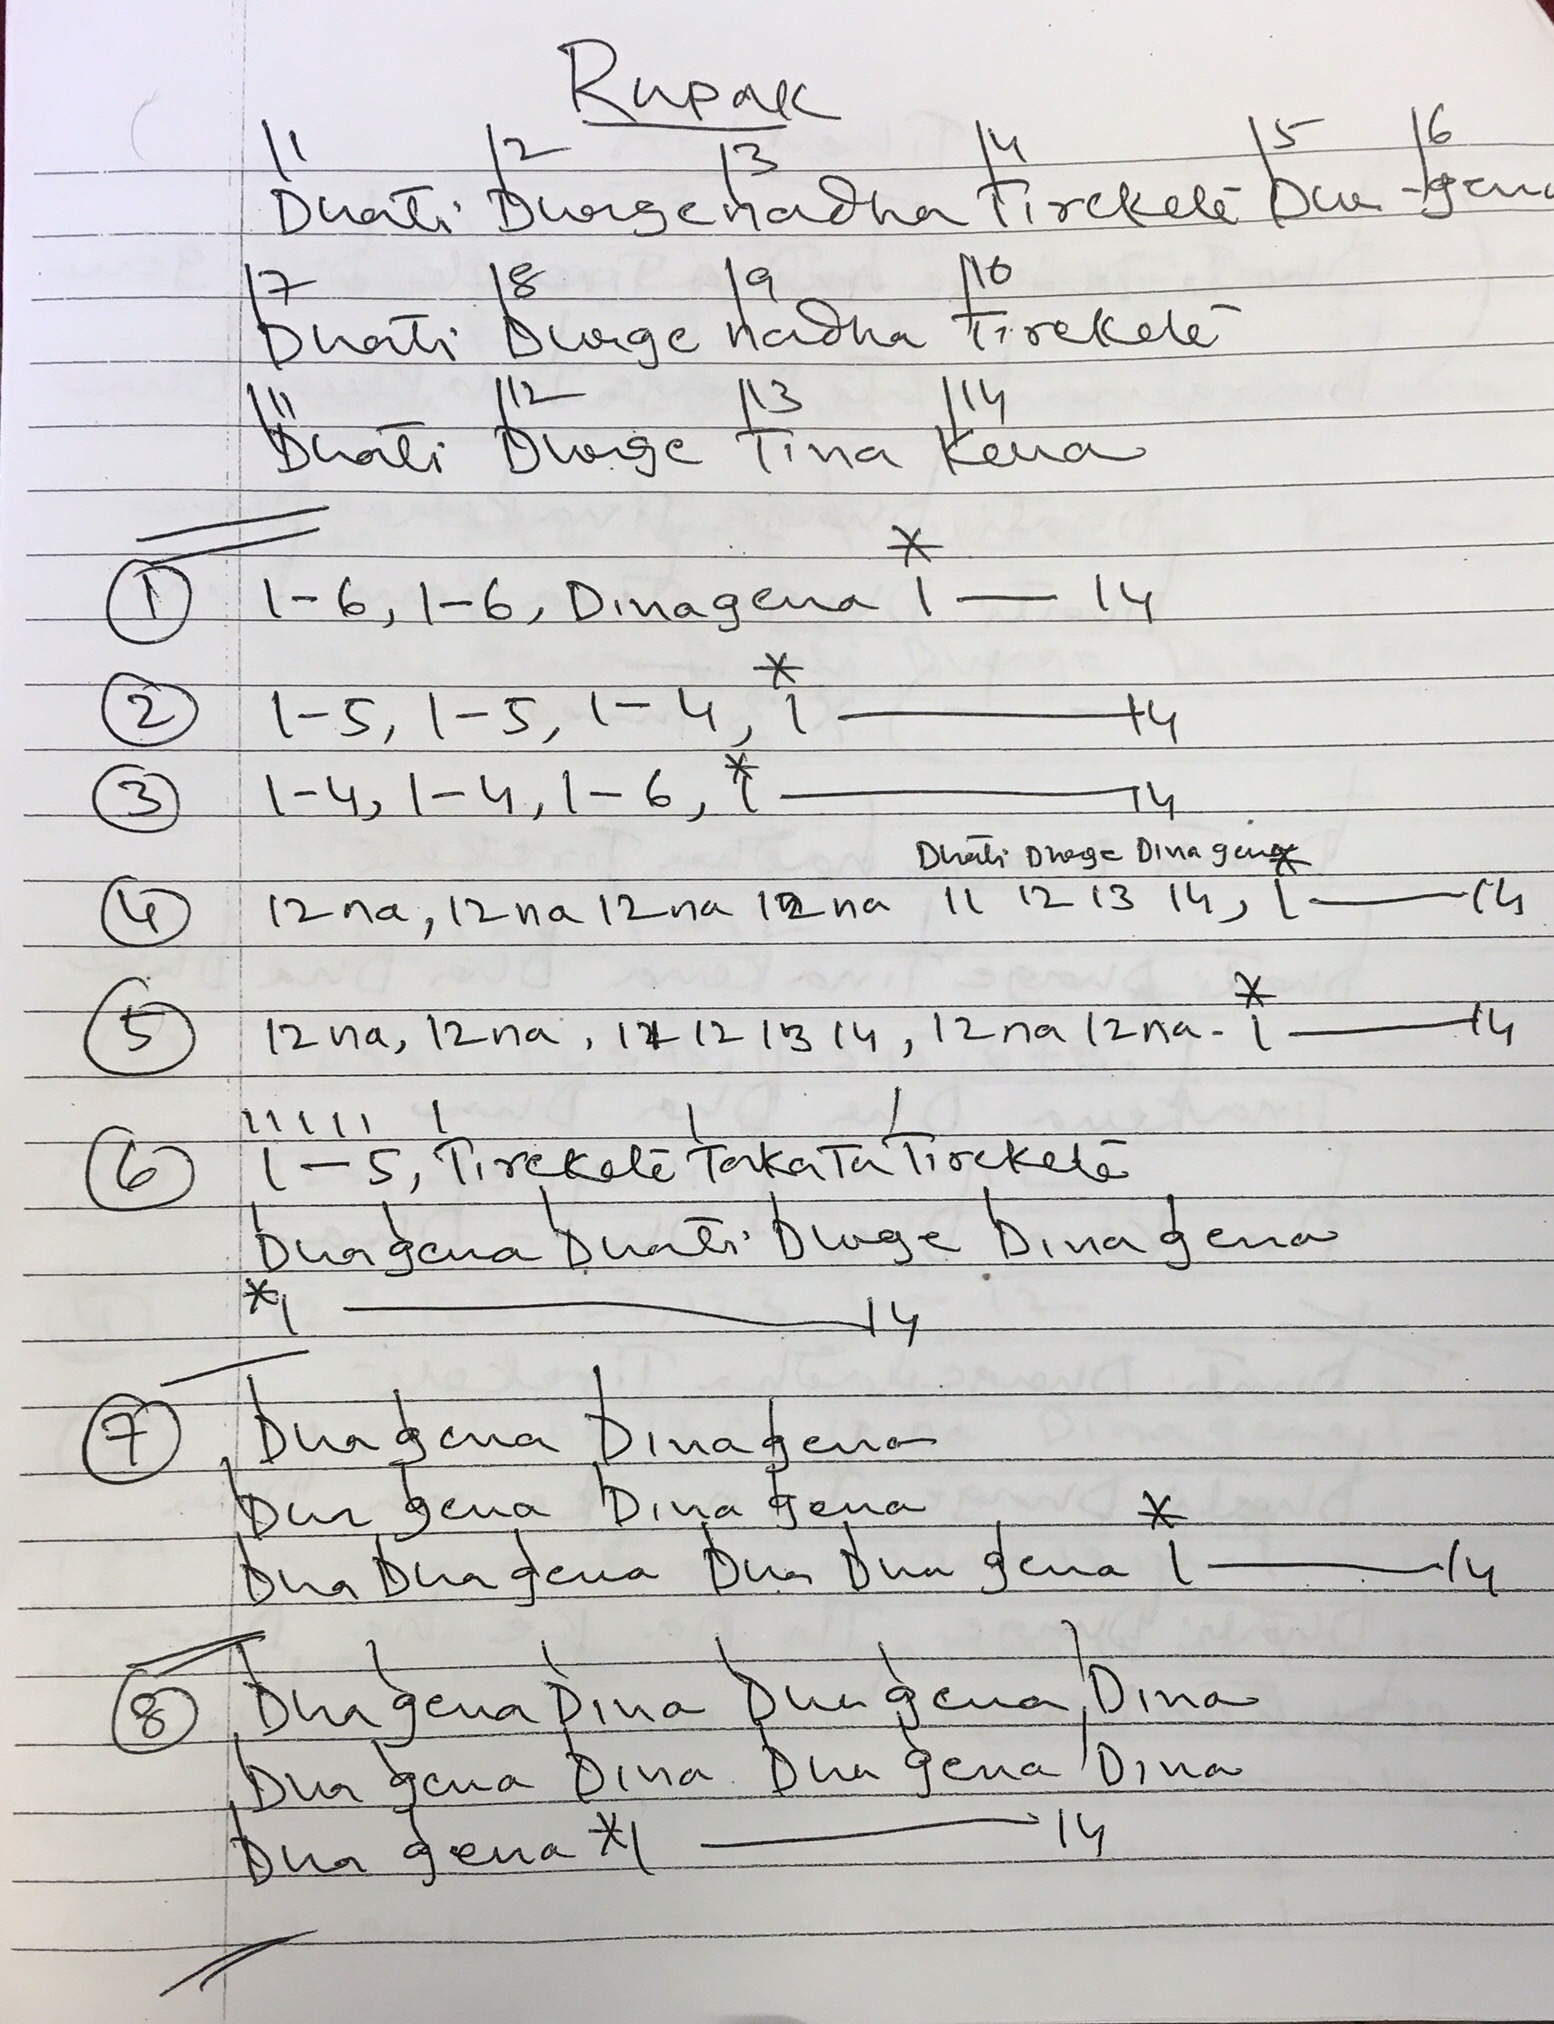 Rupak
1 2 3 4 5 6
Dhati Dhage nadha Tirekete Dha -gena
7 8 9 10
Dhati Dhage nadha Tirekete
11 12 13 14
Dhati Dhage Tina Kena
① 1-6, 1-6, Dinagena * 1 — 14
② 1-5, 1-5, 1-4, * 1 — 14
③ 1-4, 1-4, 1-6, * 1 — 14
Dhati Dhage Dina gena *
④ 12na, 12na 12na 12na 11 12 13 14, 1 — 14
⑤ 12na, 12na, 11 12 13 14, 12na 12na - * 1 — 14
⑥ 1-5, Tirekete TakaTa Tirekete
Dhagena Dhati Dhage Dinagena
*1 — 14
⑦ Dhagena Dinagena
Dhagena Dinagena
Dha Dhagena Dha Dhagena * 1 — 14
⑧ Dhagena Dina Dhagena, Dina
Dhagena Dina Dhagena Dina
Dhagena *1 — 14